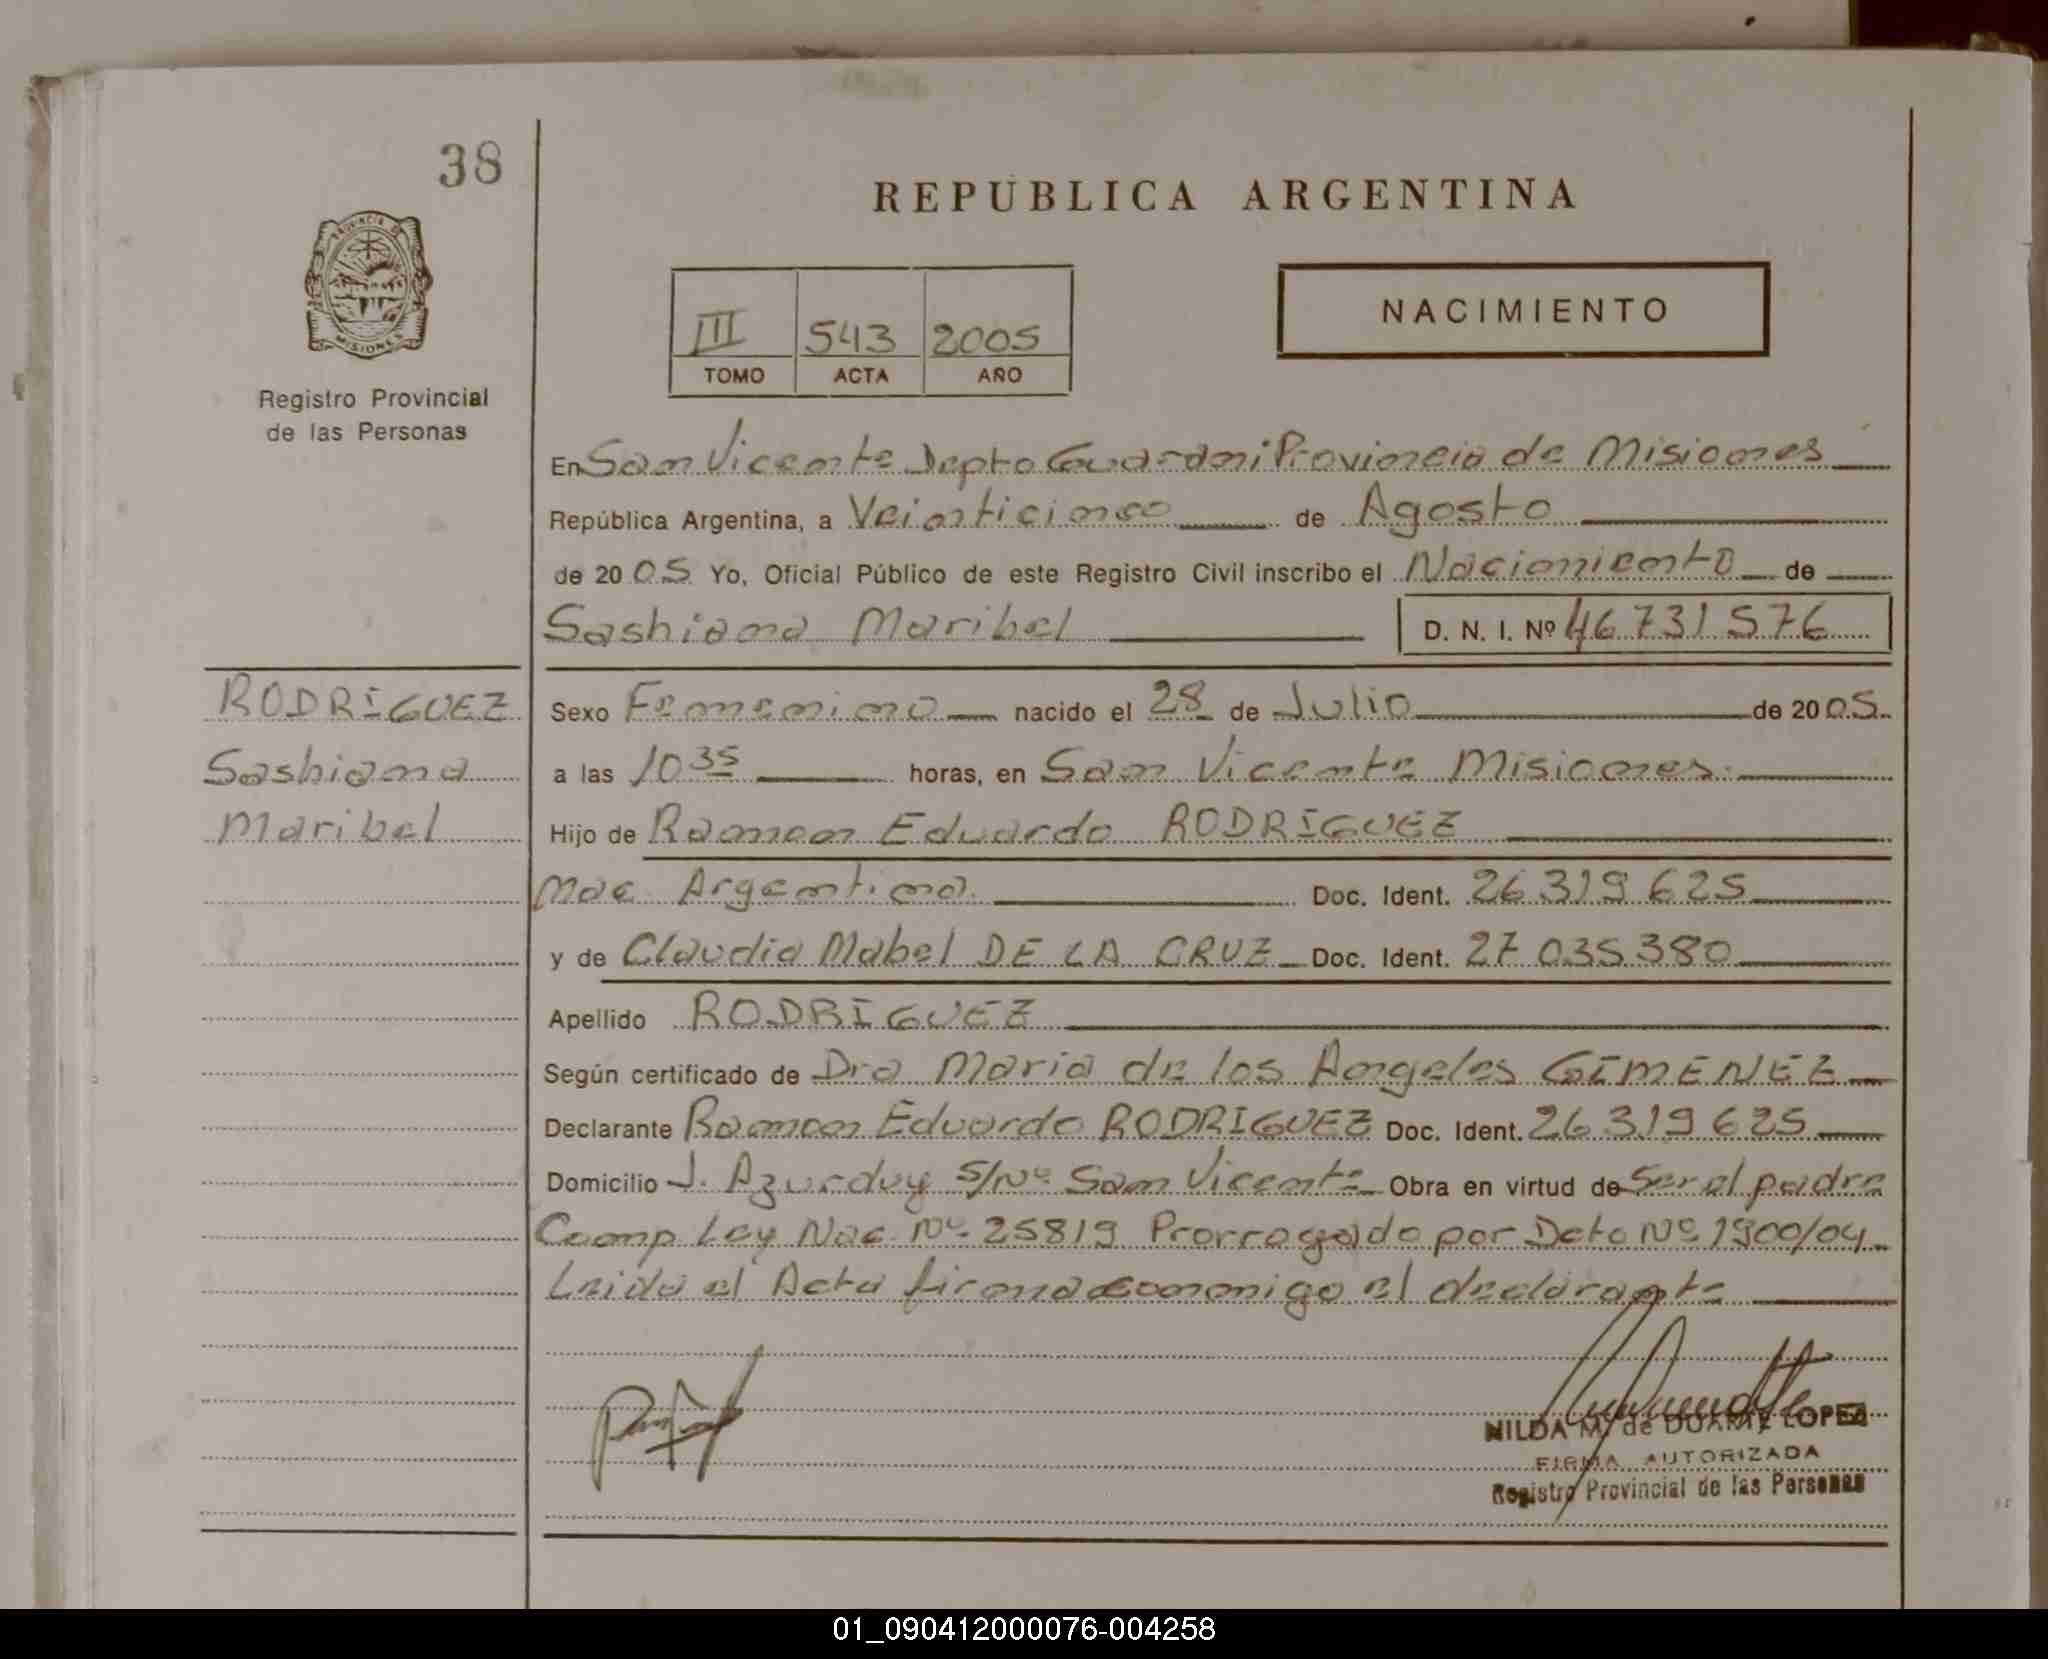 38
REPUBLICA ARGENTINA
PROVINCIA DE
MISIONES
Registro Provincial
de las Personas
III 543 2005
TOMO ACTA AÑO
NACIMIENTO
En San Vicente Depto Guarani Provincia de Misiones
República Argentina, a Veinticinco de Agosto
de 2005 Yo, Oficial Público de este Registro Civil inscribo el Nacimiento de
Sashiana Maribel D. N. I. Nº 46 731 576
RODRIGUEZ
Sashiana
Maribel
Sexo Femenino nacido el 28 de Julio de 2005
a las 10 35 horas, en San Vicente Misiones
Hijo de Ramon Eduardo RODRIGUEZ
Nac Argentina Doc. Ident. 26 319 625
y de Claudia Mabel DE LA CRUZ Doc. Ident. 27 035 380
Apellido RODRIGUEZ
Según certificado de Dra Maria de los Angeles GIMENEZ
Declarante Ramon Eduardo RODRIGUEZ Doc. Ident. 26 319 625
Domicilio J. Azurduy S/Nº San Vicente Obra en virtud de Ser el padre
Ley Nac Nº 25819 Prorrogado por Dcto Nº 1900/04
Leida el Acta firma conmigo el declarante
NILDA M. de DUARTE LOPEZ
FIRMA AUTORIZADA
Registro Provincial de las Personas
01_090412000076-004258